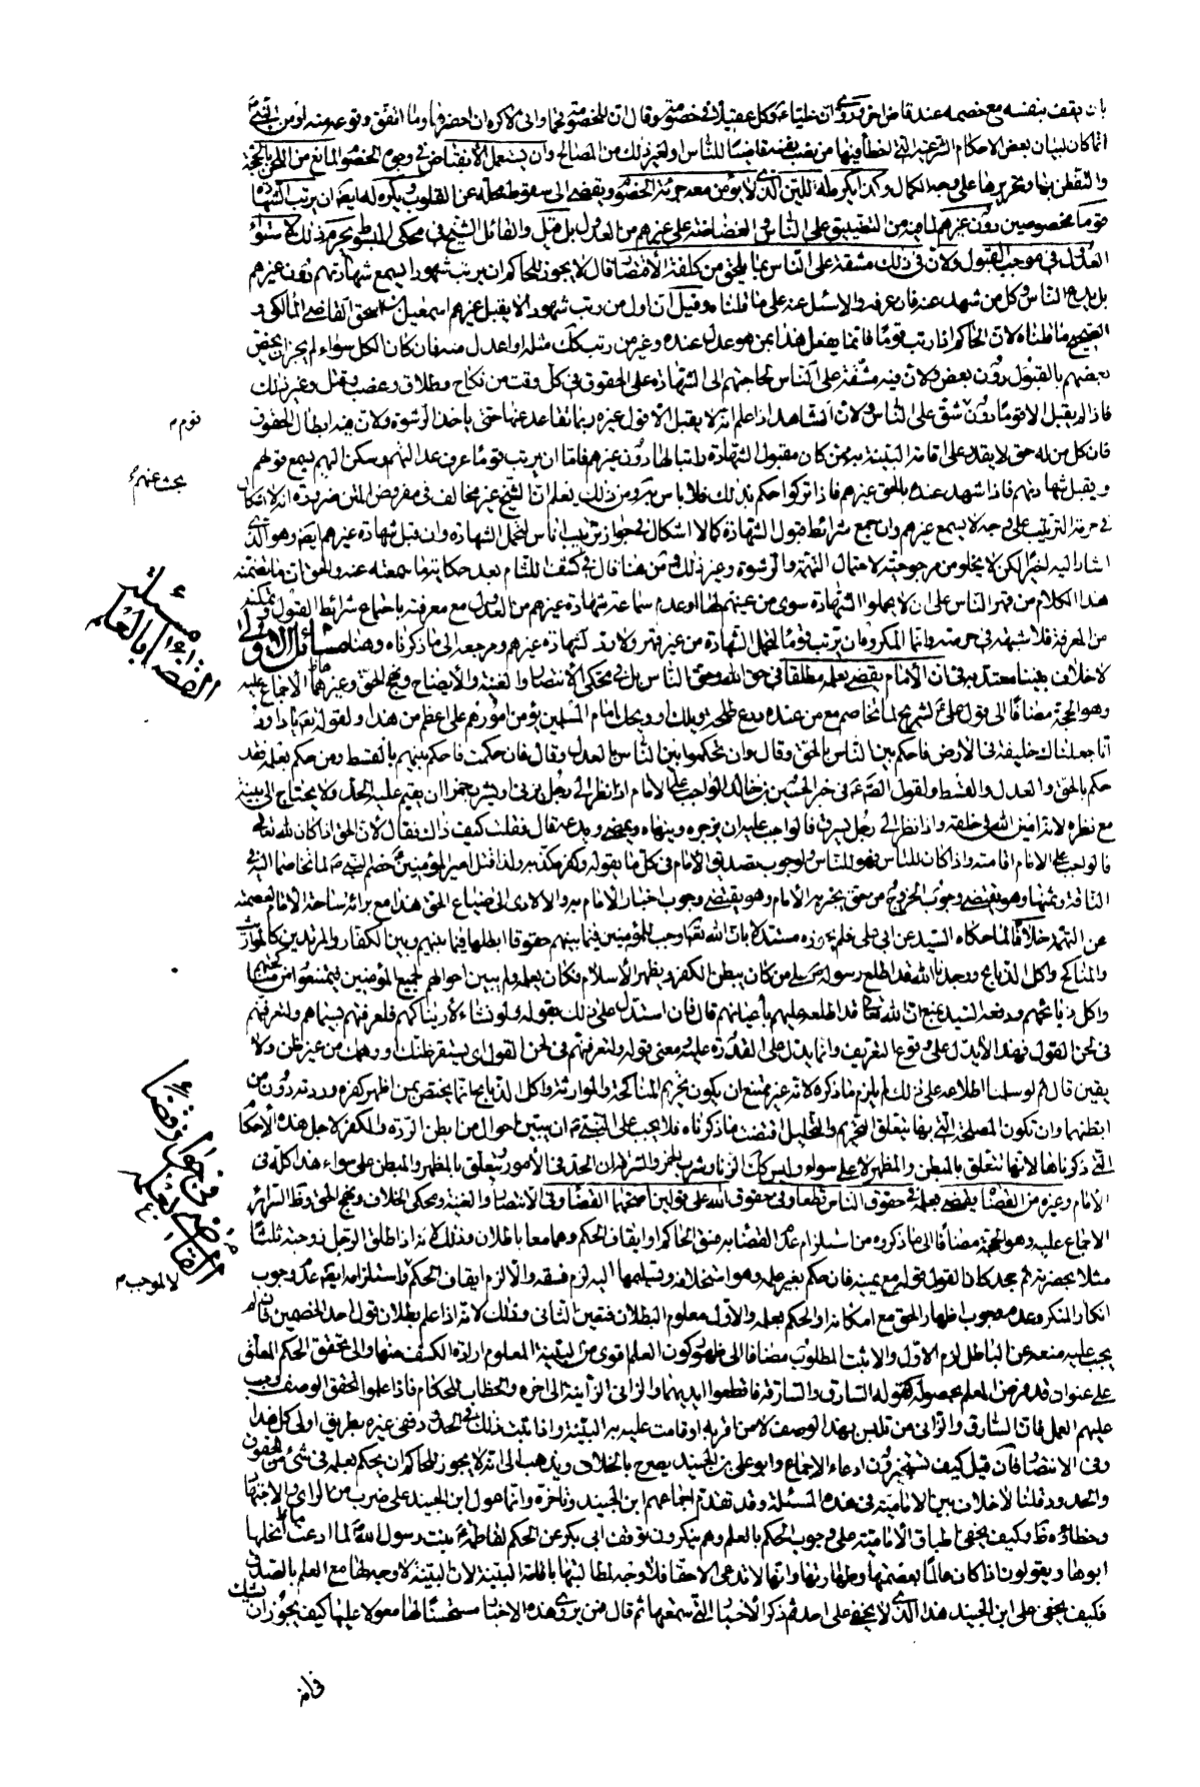 بان يقف بنفسه مع خصمه عند قاض اخر وروى ان عليا وكل عقيلا في خصومة وقال ان للخصومة قحما وانى لاكره ان احضرها وما اتفق وقوعه منه او من النبي
انما كان لبيان بعض الاحكام الشرعية التي اخطأ فيها من نصب نفسه قاضيا للناس او لغير ذلك من المصالح وان يستعمل الانقباض في وجوه الخصوم المانع من اللحن بالحجة
والتفطن بها وتحريرها على وجه الكمال وكذا يكره له اللين الذي لا يؤمن معه جرأة الخصوم ويفضى الى سقوط محله عن القلوب ويكره له ايضا ان يرتب للشهادة
قوما مخصوصين دون غيرهم لما فيه من التضييق على الناس والغضاضة على غيرهم من العدول بل قيل والقائل الشيخ في محكى المبسوط يحرم ذلك لاستواء
العدول في موجب القبول ولان في ذلك مشقة على الناس بما يلحق من كلفة الاقتصار قال لا يجوز للحاكم ان يرتب شهودا يسمع شهادتهم دون غيرهم
بل يدع الناس وكل من شهد عنده فان عرفه والا سئل عنه على ما قلناه وقيل ان اول من رتب شهودا لا يقبل غيرهم اسمعيل بن اسحق القاضي المالكي و
الصحيح ما قلناه لان الحاكم اذا رتب قوما فانما يفعل هذا بمن هو عدل عنده وغير من رتب كك مثله او اعدل منه فان كان الكل سواء لم يجز ان يخص
بعضهم بالقبول دون بعض ولان فيه مشقة على الناس لحاجتهم الى الشهادة على الحقوق في كل وقت من نكاح وطلاق وغصب وقتل وغير ذلك
فاذا لم يقبل الا قوما دون قوم شق على الناس ولان الشاهد اذا علم انه لا يقبل الا قول غيره ربما تقاعد عنها حتى ياخذ الرشوة ولان فيه ابطال الحقوق
فان كل من له حق لا يقدر على اقامة البينة به ممن كان مقبول الشهادة راتبا لها دون غيرهم فاما ان يرتب قوما عرف عدالتهم وسكن اليهم يسمع قولهم
ويقبل شهادتهم فاذا شهد عنده بالحق غيرهم فاذا زكوا حكم بذلك فلا باس به ومن ذلك يعلم ان الشيخ غير مخالف في مفروض المتن ضرورة انه لا اشكال
في حرمة الترتيب على وجه لا يسمع غيرهم وان جمع شرائط قبول الشهادة كما لا اشكال في جواز ترتيب اناس لتحمل الشهادة وان قبل شهادة غيرهم ايضا وهو الذي
اشار اليه اخيرا لكن لا يخلو من مرجوحية لاحتمال التهمة والرشوة وغير ذلك ومن هنا قال في كشف اللثام بعد حكايته
هذا الكلام من قهر الناس على ان لا يحملوا الشهادة سوى من عينهم لها او عدم سماعه شهادة غيرهم من العدول مع معرفته باجتماع شرائط القبول وتمكنه
من المعرفة فلا شبهة في حرمته وانما المكروه ان يرتب قوما لتحمل الشهادة من غير قهر ولا رد لشهادة غيرهم ومرجعه الى ما ذكرناه وهنا مسائل الاولى
لا خلاف بيننا معتد به في ان الامام يقضي بعلمه مطلقا في حق الله وحق الناس بل في محكى الانتصار والغنية والايضاح ونهج الحق وغيرها الاجماع عليه
وهو الحجة مضافا الى قول على لشريح لما تخاصم مع من عنده درع طلحة ويلك او ويحك امام المسلمين يؤمن من امورهم على اعظم من هذا ولقوله تعالى يا داود
انا جعلناك خليفة في الارض فاحكم بين الناس بالحق وقال وان تحكموا بين الناس بالعدل وقال فان حكمت فاحكم بينهم بالقسط ومن حكم بعلمه فقد
حكم بالحق والعدل والقسط ولقول الصادق في خبر الحسين بن خالد الواجب على الامام اذا نظر الى رجل يزني او يشرب خمرا ان يقيم عليه الحد ولا يحتاج الى بينة
مع نظره لانه امين الله في خلقه واذا نظر الى رجل يسرق فالواجب عليه ان يزجره وينهاه ويمضى ويدعه قال فقلت كيف ذاك فقال لان الحق اذا كان لله تعالى
فالواجب على الامام اقامته واذا كان للناس فهو للناس ولوجوب تصديق الامام في كل ما يقوله وكفر مكذبه ولذا قتل امير المؤمنين خصم النبي لما تخاصما اليه في
الناقة وثمنها وهو يقتضي وجوب الخروج من حق يخبر به الامام وهو يقتضي وجوب اخبار الامام به والا لادى الى ضياع الحق هذا مع برائة ساحة الامام لعصمته
عن التهمة خلافا لما حكاه السيد عن ابي على فلم يجوزه مستدلا بان الله تعالى اوجب للمؤمنين فيما بينهم حقوقا ابطلها فيما بينهم وبين الكفار والمرتدين كالمواريث
والمناكح واكل الذبايح ووجدنا الله قد اطلع رسوله على من كان يبطن الكفر ويظهر الاسلام فكان يعلمه ولم يبين احوالهم لجميع المؤمنين فيمتنعوا من مناكحتهم
واكل ذبائحهم ودفعه السيد بمنع ان الله تعالى قد اطلعه عليهم باعيانهم قال فان استدل على ذلك بقوله ولو نشاء لاريناكهم فلعرفتهم بسيماهم ولتعرفنهم
في لحن القول فهذا لا يدل على وقوع التعريف وانما يدل على القدرة عليه ومعنى قوله ولتعرفنهم في لحن القول اى يستقر ظنك او وهمك من غير ظن ولا
يقين قال ثم لو سلمنا اطلاعه على ذلك لم يلزم ما ذكره لانه غير ممتنع ان يكون تحريم المناكحة والموارثة واكل الذبايح انما يختص بمن اظهر كفره وردته دون من
ابطنهما وان تكون المصلحة التي بها يتعلق التحريم والتحليل اقتضت ما ذكرناه فلا يجب على النبي ان يبين احوال من ابطن الردة والكفر لاجل هذه الاحكام
التي ذكرناها لانها تتعلق بالمبطن والمظهر لا على سواء وليس كك الزنا وشرب الخمر والسرقة لان الحد في الامور يتعلق بالمظهر والمبطن على سواء هذا كله في
الامام وغيره من القضاة يقضى بعلمه في حقوق الناس قطعا وفي حقوق الله على قولين اصحهما القضاء وفي الانتصار والغنية ومحكى الخلاف ونهج الحق وظاهر السرائر
الاجماع عليه وهو الحجة مضافا الى ما ذكروه من استلزام عدم القضاء به فسق الحاكم او ايقاف الحكم وهما معا باطلان وذلك لانه اذا طلق الرجل زوجته ثلثا
مثلا بحضرته ثم جحد كان القول قوله مع يمينه فان حكم بغير علمه وهو استحلافه وتسليمها اليه لزم فسقه والا لزم ايقاف الحكم واستلزامه ايضا عدم وجوب
انكار المنكر وعدم وجوب اظهار الحق مع امكانه او الحكم بعلمه والاول معلوم البطلان فتعين الثانى وذلك لانه اذا علم بطلان قول احد الخصمين فان لم
يجب عليه منعه عن الباطل لزم الاول والا ثبت المطلوب مضافا الى ظهور كون العلم اقوى من البينة المعلوم ارادة الكشف منها والى تحقق الحكم المعلق
على عنوان قد فرض العلم بحصوله كقوله السارق والسارقة فاقطعوا ايديهما والزانى والزانية الى اخره والخطاب للحكام فاذا علموا تحقق الوصف وجب
عليهم العمل فان السارق والزانى من تلبس بهذا الوصف لا من اقر به او قامت عليه به البينة واذا ثبت ذلك في الحدود ففي غيره بطريق اولى كل هذا
وفي الانتصار فان قيل كيف تستجيزون ادعاء الاجماع وابو على بن الجنيد يصرح بالخلاف ويذهب الى انه لا يجوز للحاكم ان يحكم بعلمه في شئ من الحقوق
والحدود قلنا لا خلاف بين الامامية في هذه المسئلة وقد تقدم اجماعهم ابن الجنيد وتاخره وانما عول ابن الجنيد على ضرب من الراى والاجتهاد
وخطاؤه ظاهر وكيف يخفى اطباق الامامية على وجوب الحكم بالعلم وهم ينكرون توقف ابى بكر عن الحكم لفاطمة بنت رسول الله لما ادعت انه نحلها
ابوها ويقولون اذا كان عالما بعصمتها وطهارتها وانها لا تدعى الا حقا فلا وجه لمطالبتها باقامة البينة لان البينة لا وجه لها مع العلم بالصدق
فكيف يخفى على ابن الجنيد هذا الذي لا يخفى على احد ثم ذكر الاخبار التي سمعتها ثم قال فمن يروى هذه الاخبار مستحسنا لها معولا عليها كيف يجوز ان يشك
قوم م
بحث عنهم
مسئلة
القضاء بالعلم
في جواز قضاء
القاضي بعلمه
لا لموجب م
في انه